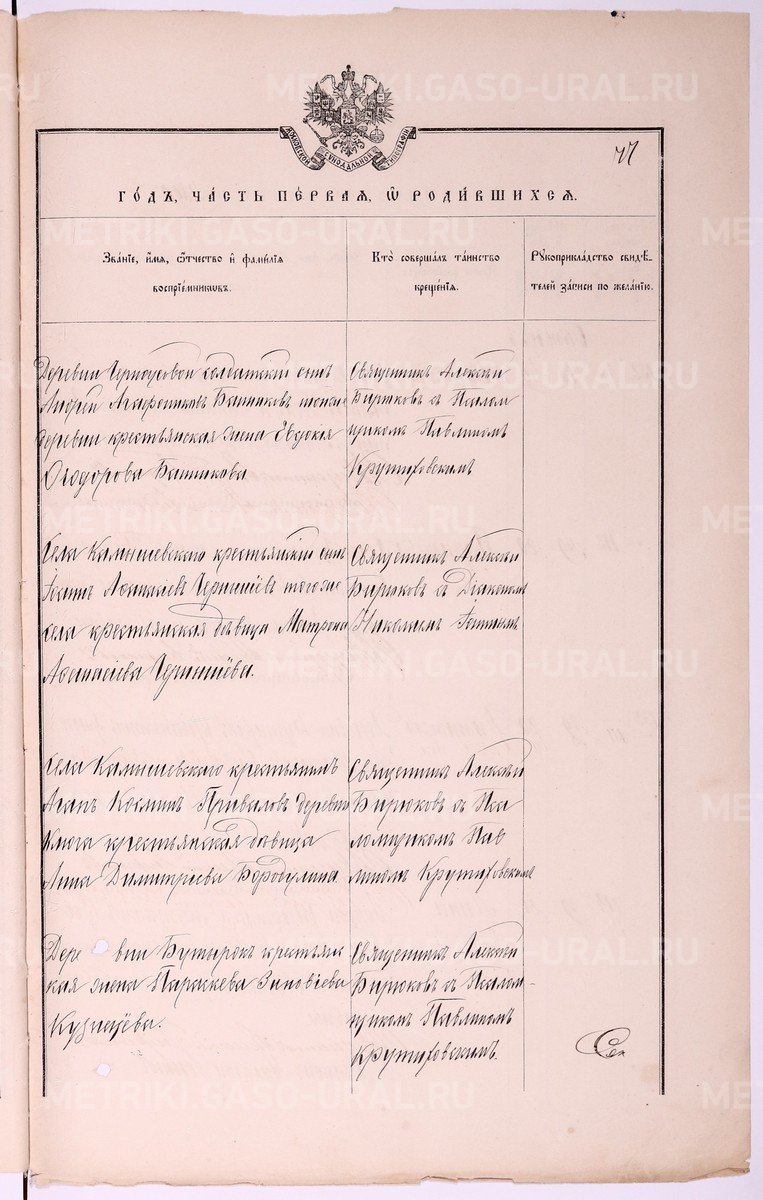 METRIKI.GASO-URAL.RU
МОСКОВСКОЙ СѴНОДАЛЬНОЙ ТИПОГРАФІИ
77
ГОДЪ, ЧАСТЬ ПЕРВАЯ, Ѡ РОДИВШИХСЯ.
Званіе, имя, отчество и фамилія
воспріемниковъ.
Кто совершалъ таинство
крещенія.
Рукоприкладство свидѣ-
телей записи по желанію.
Деревни Черноусовой солдатскій сынъ
Андрей Агафониковъ Банниковъ тойже
деревни крестьянская жена Евдокія
Ѳеодорова Банникова
Священникъ Алексѣй
Бирюковъ съ Псалом
щикомъ Павлиномъ
Крутиховскимъ
Села Камышевскаго крестьянскій сынъ
Іоаннъ Аѳанасіевъ того же
села крестьянская дѣвица Матрона
Аѳанасіева
Священникъ Алексѣй
Бирюковъ съ Діакономъ
Николаемъ
Села Камышевскаго крестьянинъ
Агапъ Косминъ Приваловъ деревни
Ключа крестьянская дѣвица
Анна Димитріева Бородулина
Священникъ Алексѣй
Бирюковъ съ Пса
ломщикомъ Пав
линомъ Крутиховскимъ
Деревни Бутырокъ крестьянс
кая жена Параскева Зиновіева
Кузнецова.
Священникъ Алексѣй
Бирюковъ съ Псалом-
щикомъ Павлиномъ
Крутиховскимъ.